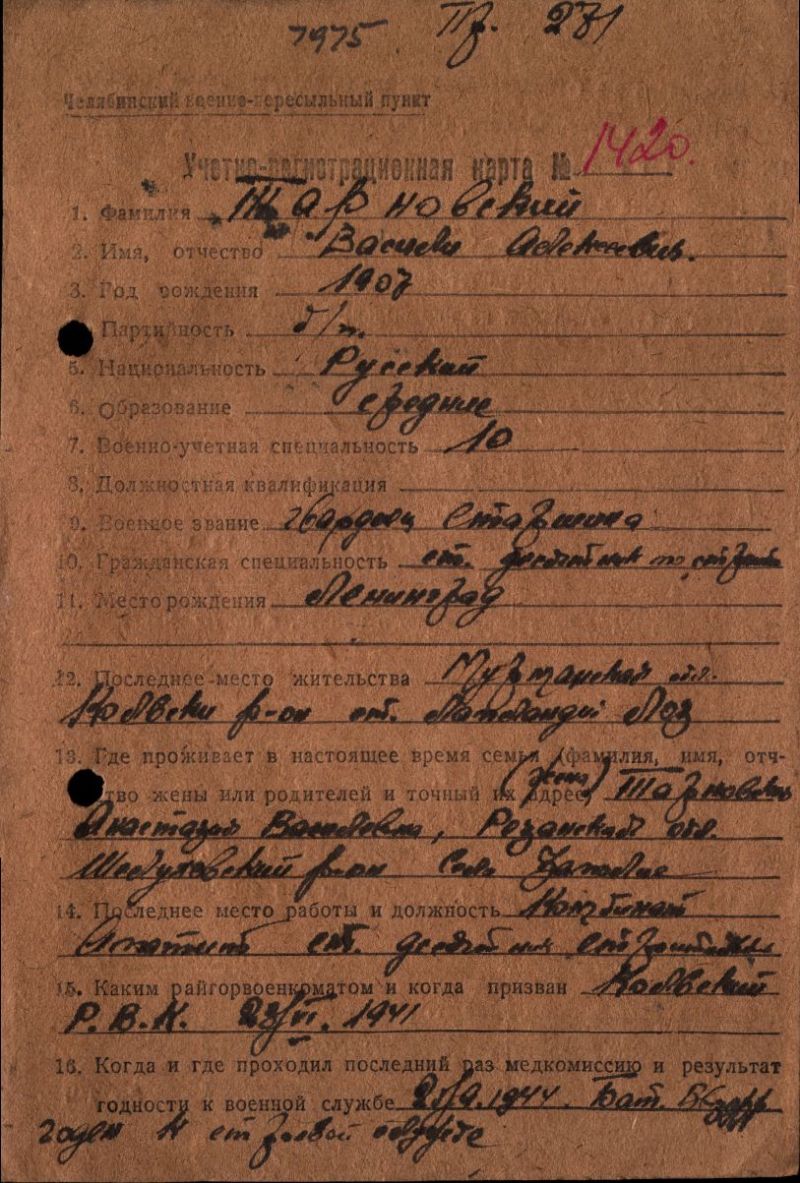 7975. Пр. 271
Челябинский военно-пересыльный пункт
Учетно-регистрационная карта № 1420.
1. Фамилия Тарновский
2. Имя, отчество Василий Алексеевич.
3. Год рождения 1907
Партийность б/п.
5. Национальность Русский
6. Образование среднее
7. Военно-учетная специальность 10
8. Должностная квалификация
9. Военное звание гвардеец Старшина
10. Гражданская специальность ст. десятник по
11. Место рождения Ленинград
12. Последнее место жительства Мурманской обл.
р-он ст.
13. Где проживает в настоящее время семья (фамилия, имя, отч-
тво жены или родителей и точный их адрес) (жена) Тарновская
Анастасия Васильевна, Резанской обл.
р-он Село
14. Последнее место работы и должность Комбинат
Апатит ст. десятник
15. Каким райгорвоенкоматом и когда призван
Р.В.К. 23/VI. 1941
16. Когда и где проходил последний раз медкомиссию и результат
годности к военной службе Бат.
годен к строевой службе